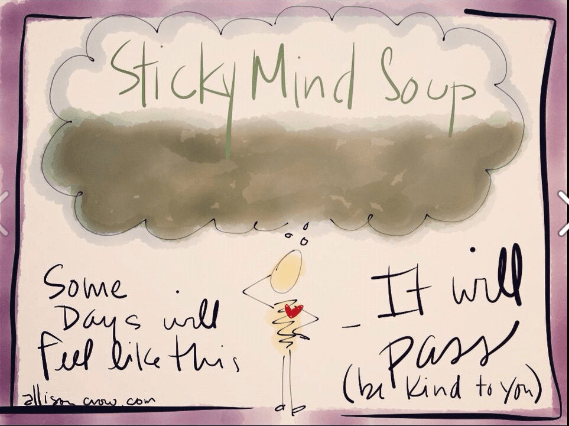 Sticky Mind Soup
Some
Days will
feel like this
- It will
pass
(be kind to you)
allison crow.com